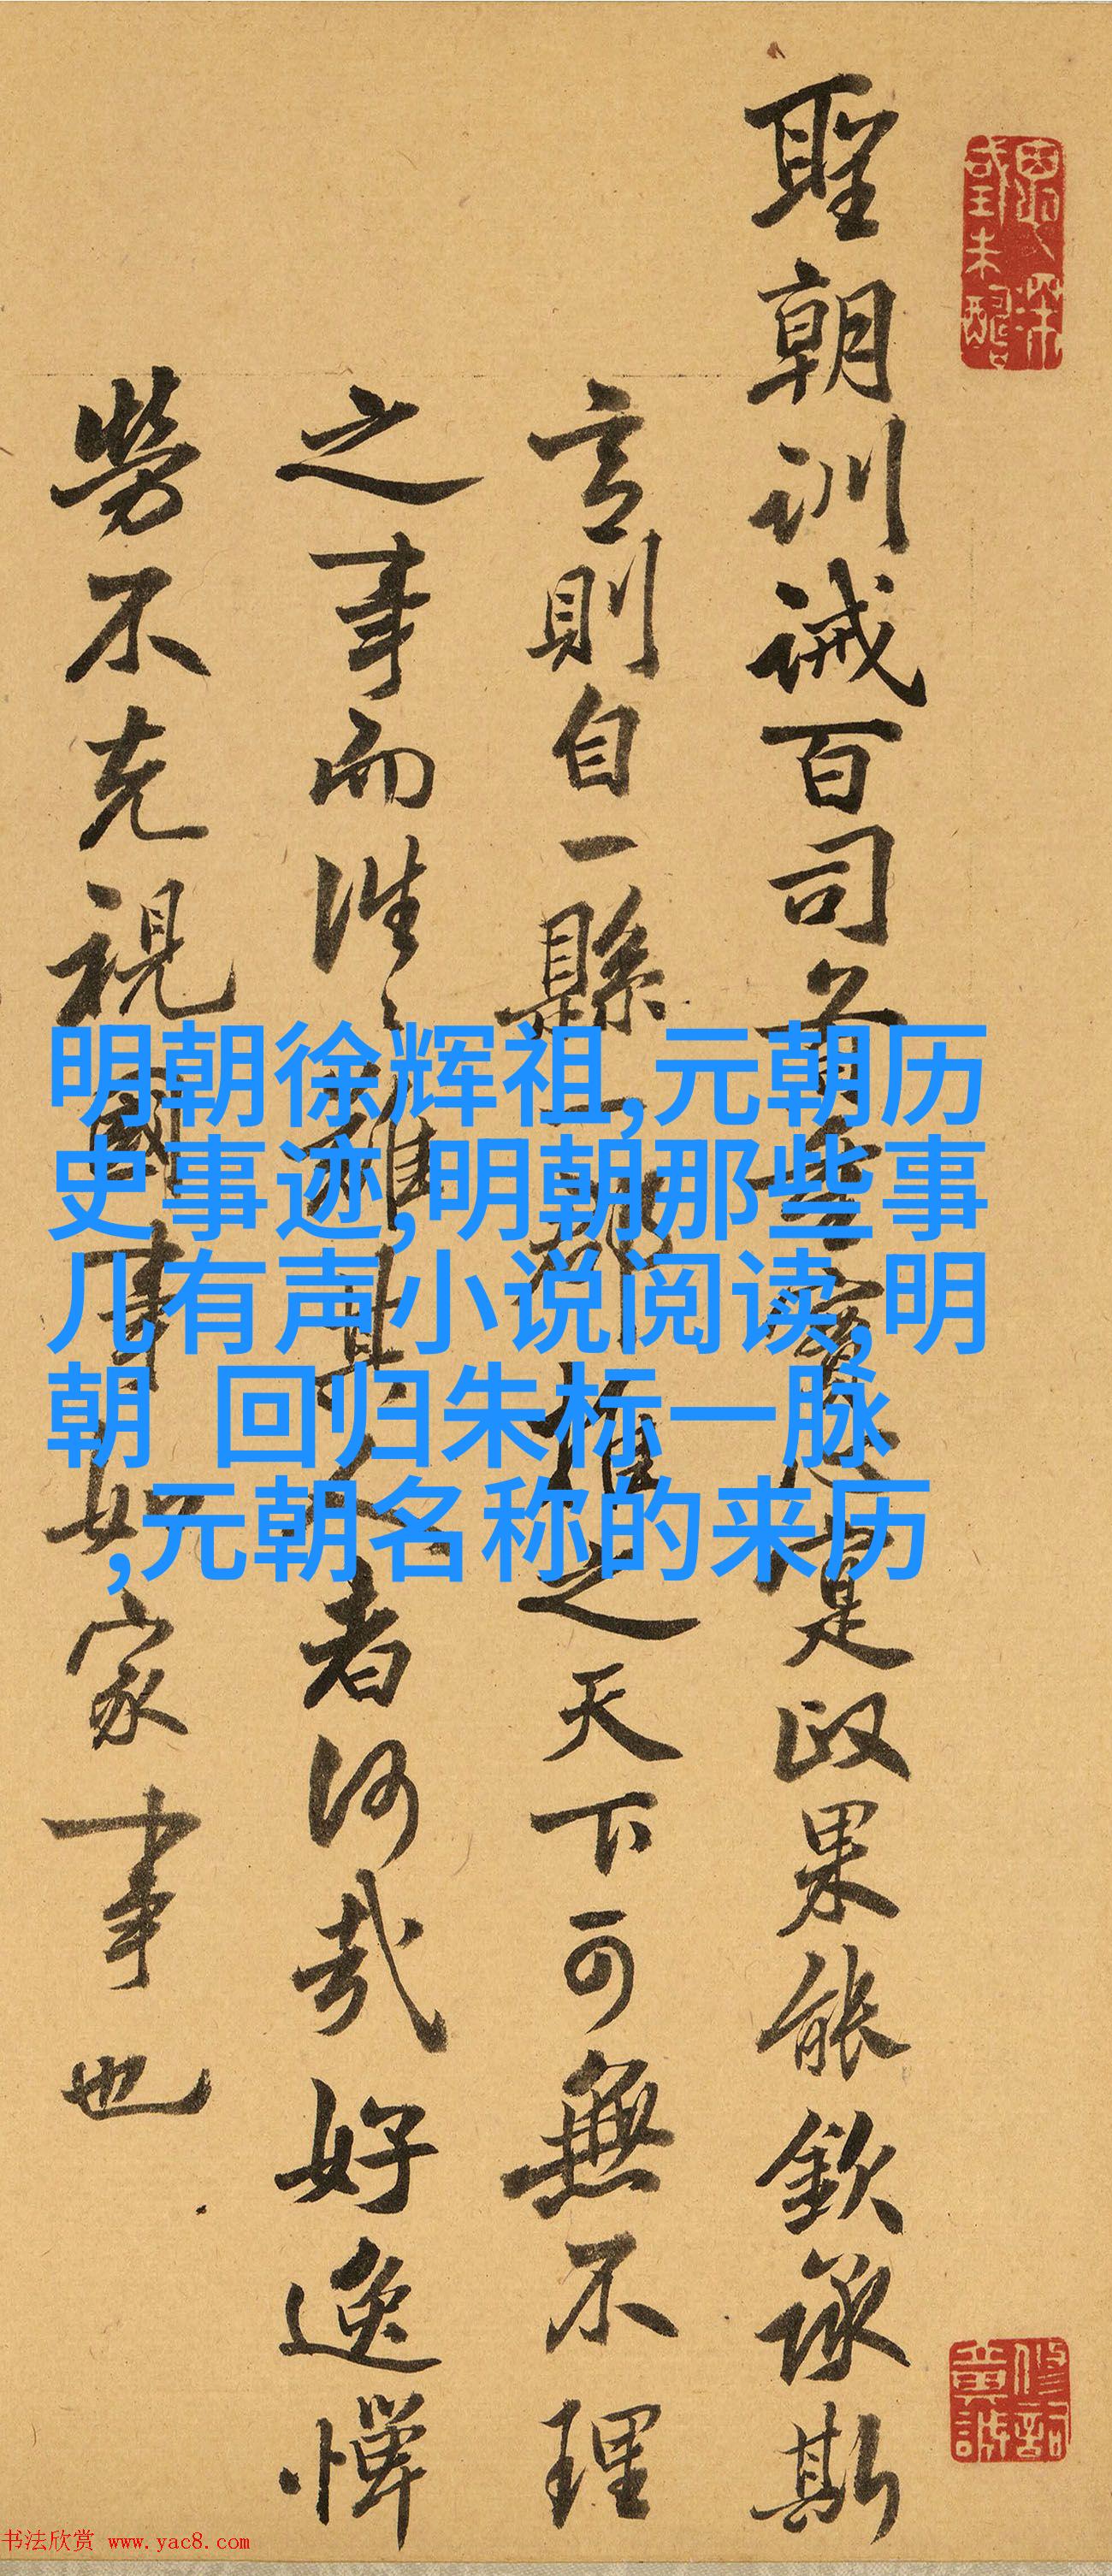 聖朝訓誡百司是政果能欽承斯
言則自一縣一郡推之天下可無不理
之事而往々難其人者何哉好逸憚
勞不克視國事如家事也
明朝徐辉祖,元朝历
史事迹,明朝那些事
儿有声小说阅读,明
朝 回归朱标一脉
,元朝名称的来历
书法欣赏 www.yac8.com